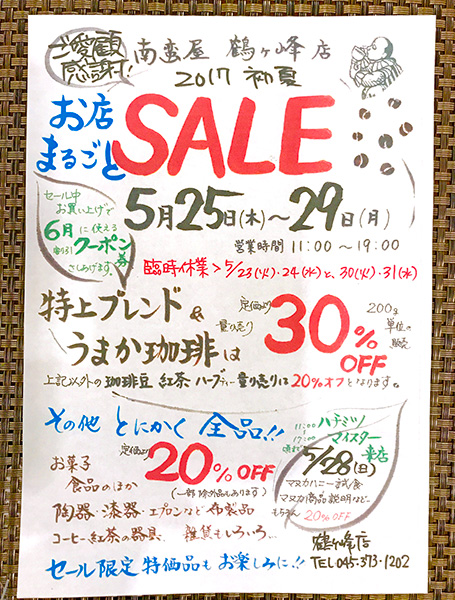 ご愛顧感謝!
南蛮屋 鶴ヶ峰店
2017 初夏
お店まるごと
SALE
セール中
お買い上げで
6月に使える
割引クーポン券
さしあげます。
5月25日(木)~29日(月)
営業時間 11:00~19:00
臨時休業>5/23(火)・24(水)と、30(火)・31(水)
特上ブレンド&
うまか珈琲は
量り売り
定価より
30%OFF
200g
単位の
販売
上記以外の珈琲豆 紅茶 ハーブティー量り売りは20%オフとなります。
その他 とにかく 全品!!
お菓子
食品のほか
定価より
20%OFF
(一部除外品もあります)
陶器・漆器・エプロンなど布製品
コーヒー紅茶の器具、雑貨もいろいろ…
11:00
17:00
頃まで
ハチミツ
マイスター
来店
5/28(日)
マヌカハニー試食
マヌカ商品説明など…
もちろん 20%OFF
セール限定 特価品も お楽しみに!!
鶴ヶ峰店
TEL 045-373-1202